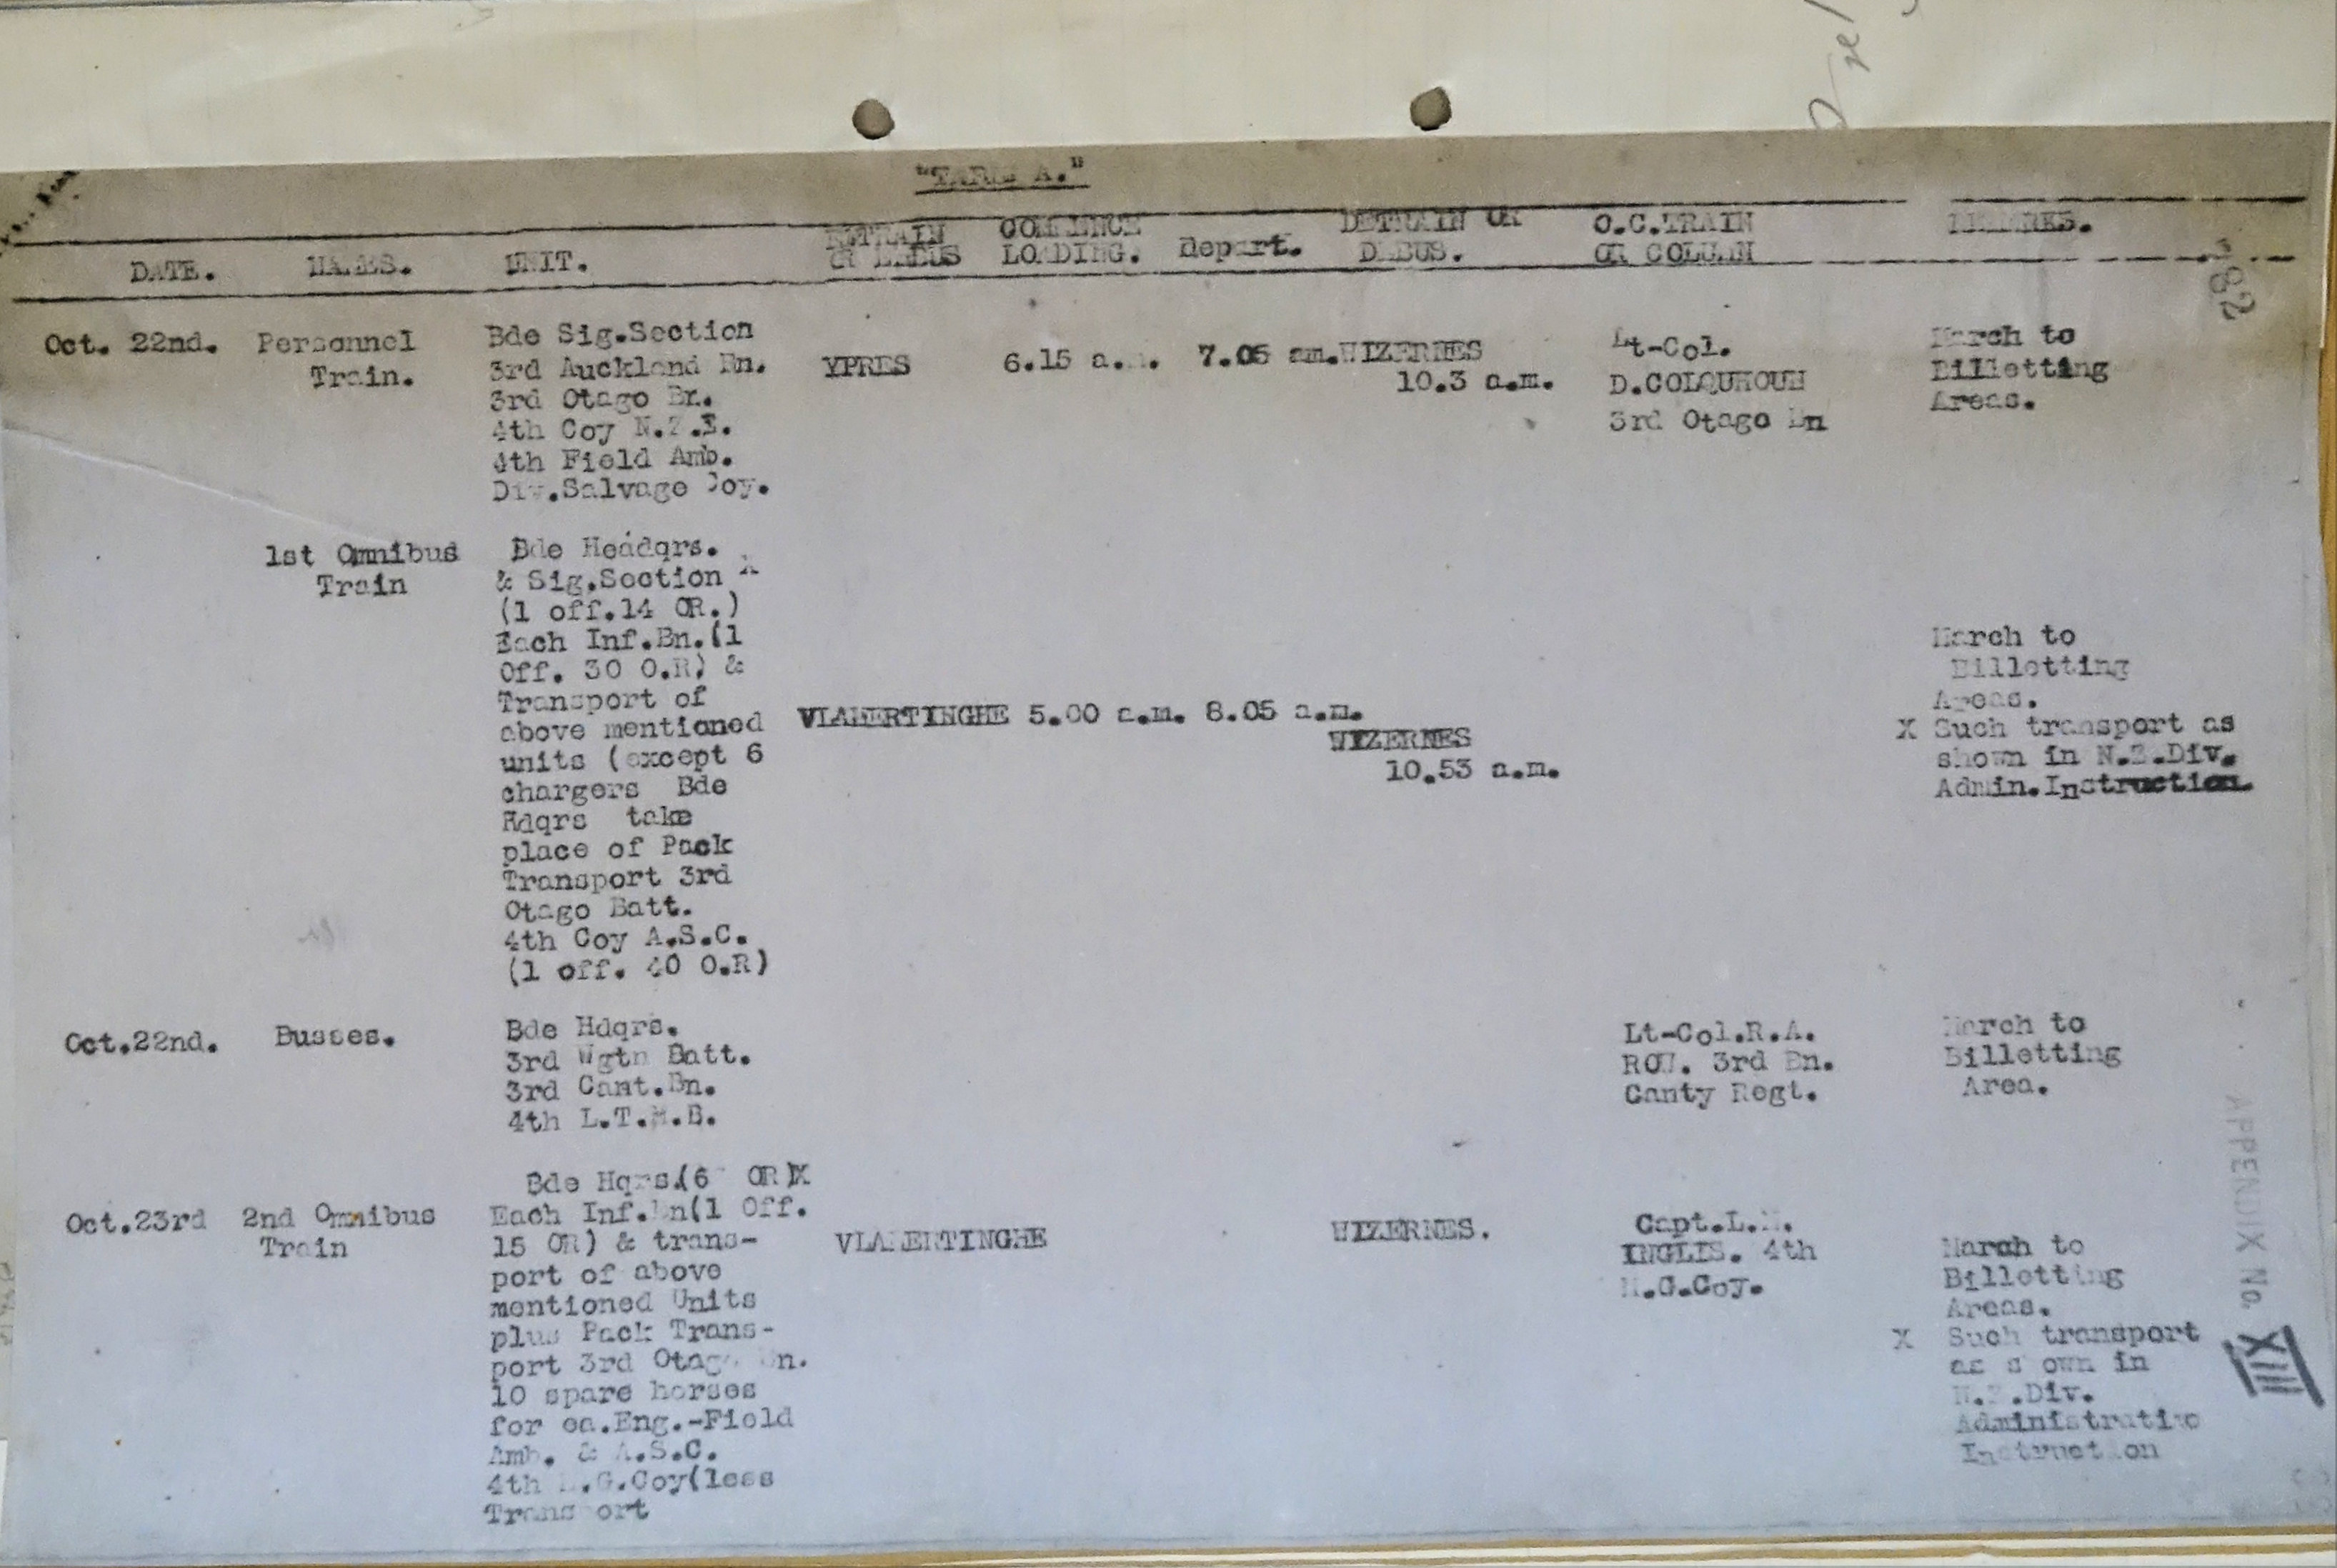 "TABLE A."
DATE. NAMES. UNIT. ENTRAIN OR EMBUS COMMENCE LOADING. depart. DETRAIN OR DEBUS. O.C.TRAIN OR COLUMN REMARKS.
182
Oct. 22nd. Personnel Train.
Bde Sig.Section
3rd Auckland Bn.
3rd Otago Bn.
4th Coy N.Z.E.
4th Field Amb.
Div.Salvage Coy.
YPRES 6.15 a.m. 7.05 am. WIZERNES
10.3 a.m.
Lt-Col.
D.COLQUHOUN
3rd Otago Bn
March to
Billetting
Areas.
1st Omnibus
Train
Bde Headqrs.
& Sig.Section X
(1 off.14 OR.)
Each Inf.Bn.(1
Off. 30 O.R) &
Transport of
above mentioned
units (except 6
chargers Bde
Hdqrs take
place of Pack
Transport 3rd
Otago Batt.
4th Coy A.S.C.
(1 off. 40 O.R)
VLAMERTINGHE 5.00 a.m. 8.05 a.m.
WIZERNES
10.53 a.m.
March to
Billetting
Areas.
X Such transport as
shown in N.Z.Div.
Admin.Instruction.
Oct.22nd. Busses.
Bde Hdqrs.
3rd Wgtn Batt.
3rd Cant.Bn.
4th L.T.M.B.
Lt-Col.R.A.
ROW. 3rd Bn.
Canty Regt.
March to
Billetting
Area.
Oct.23rd 2nd Omnibus
Train
Bde Hqrs.(6 OR)X
Each Inf.Bn(1 Off.
15 OR) & trans-
port of above
mentioned Units
plus Pack Trans-
port 3rd Otago Bn.
10 spare horses
for ea.Eng.-Field
Amb. & A.S.C.
4th M.G.Coy(less
Transport
VLAMERTINGHE
WIZERNES.
Capt.L.M.
INGLIS. 4th
M.G.Coy.
March to
Billetting
Areas.
X Such transport
as shown in
N.Z.Div.
Administrative
Instruction
APPENDIX No. XIII